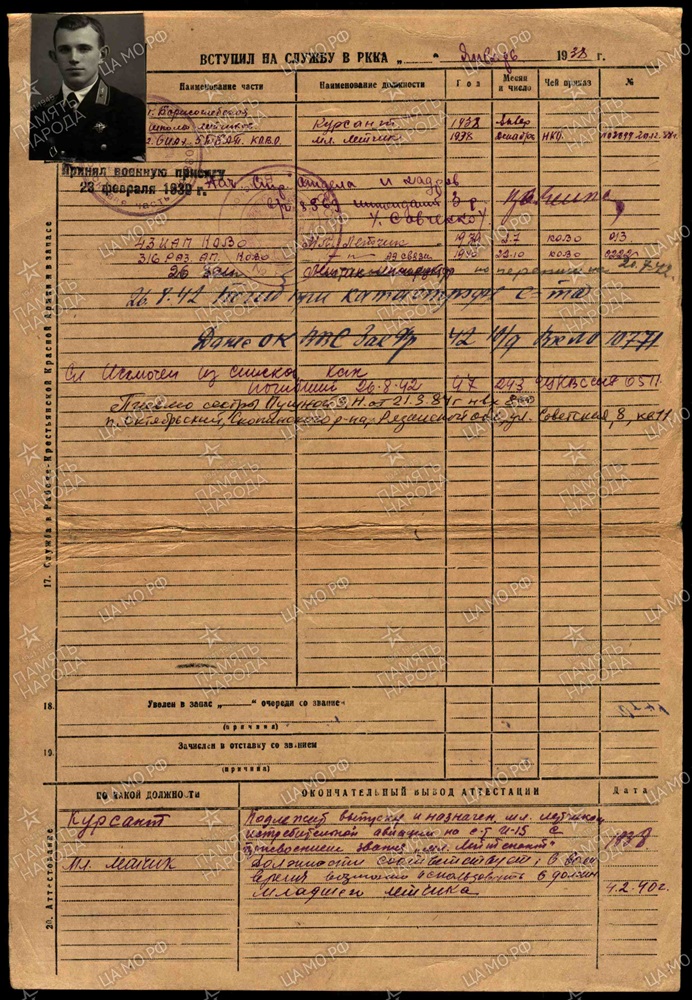 ВСТУПИЛ НА СЛУЖБУ В РККА „ “ Январь 1938 г.
Наименование части Наименование должности Год Месяц и число Чей приказ №
г. Борисоглебская
школа летчиков Курсант 1938 Январ
Мл. летчик 1938 декабрь НКО
Принял военную присягу
23 февраля 1939 г.
отдела и кадров
интендант 3 р.
/Савченко/
43 ИАП КОВО Мл. Летчик 1939 2.7 КОВО 013
316 РАЗ. АП. КОВО связи 1940 22.10 КОВО 0222
20.7.42
26.8.42 Погиб при катастрофе с-та
42 10/9 10771
Исключен из списков как
погибший 26.8.42 47 243 05П
Письмо сестры Пушной З.Н. от 21.3.84г
п. Октябрьский, Скопинского р-на, Рязанской обл., ул. Советская, 8, кв 11
17. Служба в Рабоче-Крестьянской Красной Армии и в запасе
18. Уволен в запас „ “ очереди со званием
(причина)
19. Зачислен в отставку со званием
(причина)
20. Аттестование
ПО КАКОЙ ДОЛЖНОСТИ ОКОНЧАТЕЛЬНЫЙ ВЫВОД АТТЕСТАЦИИ Дата
Курсант Подлежит выпуску и назначен. мл. летчиком
истребительной авиации на с-т И-15 с
присвоением звания „мл. лейтенант“ 1938
Мл. летчик Должности соответствует, в воен
время возможно использовать в должн
младшего летчика 4.2.40г.
ПАМЯТЬ НАРОДА
ЦАМО.РФ